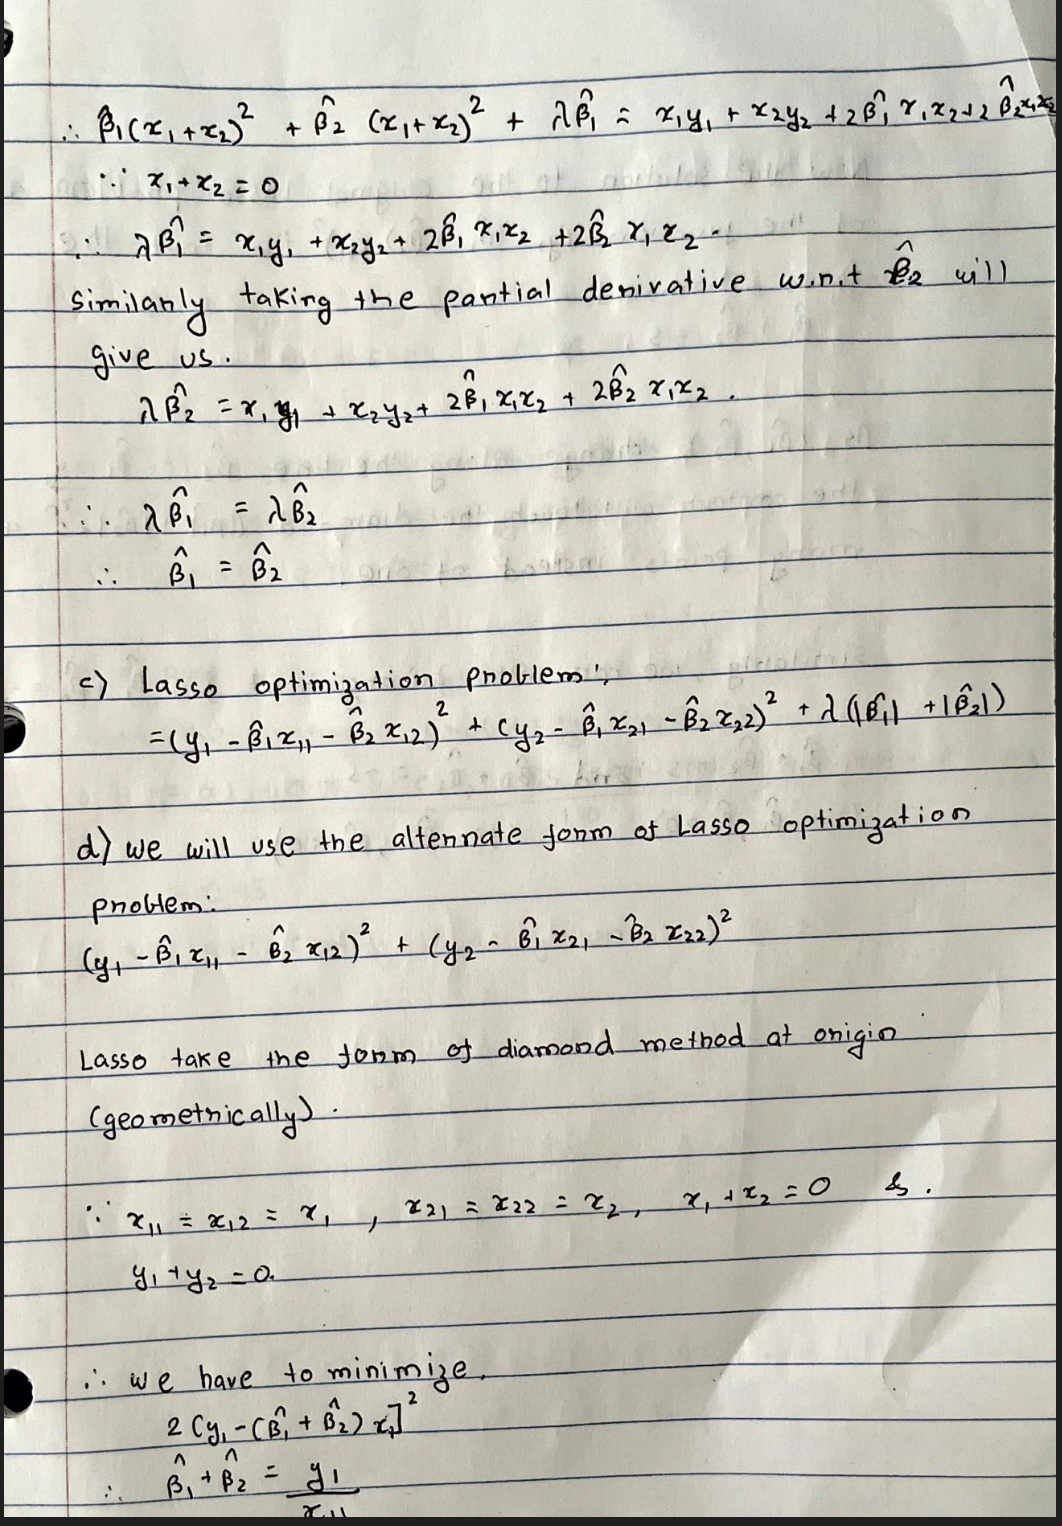 ∴ β̂₁(x₁+x₂)² + β̂₂ (x₁+x₂)² + λβ̂₁ = x₁y₁ + x₂y₂ + 2β̂₁ x₁x₂ + 2 β̂₂x₁x₂
∵ x₁+x₂ = 0
∴ λβ̂₁ = x₁y₁ + x₂y₂ + 2β̂₁ x₁x₂ + 2β̂₂ x₁x₂.
Similarly taking the partial derivative w.r.t β̂₂ will
give us.
λβ̂₂ = x₁y₁ + x₂y₂ + 2β̂₁x₁x₂ + 2β̂₂ x₁x₂.
∴ λβ̂₁ = λβ̂₂
∴ β̂₁ = β̂₂
c) Lasso optimization problem:
= (y₁ - β̂₁x₁₁ - β̂₂x₁₂)² + (y₂ - β̂₁x₂₁ - β̂₂x₂₂)² + λ(|β̂₁| + |β̂₂|)
d) we will use the alternate form of Lasso optimization
problem:
(y₁ - β̂₁x₁₁ - β̂₂ x₁₂)² + (y₂ - β̂₁ x₂₁ - β̂₂ x₂₂)²
Lasso take the form of diamond method at origin
(geometrically).
∵ x₁₁ = x₁₂ = x₁, x₂₁ = x₂₂ = x₂, x₁ + x₂ = 0 &.
y₁ + y₂ = 0.
∴ we have to minimize.
2 [y₁ - (β̂₁ + β̂₂) x₁]²
∴ β̂₁ + β̂₂ = y₁
x₁₁